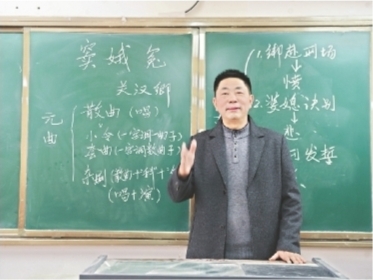 窦娥冤
关汉卿
元曲
散曲(唱)
小令(一宫调一曲子)
套曲(一宫调数曲子)
杂剧(散曲+科+
(唱+演)
1.绑赴刑场
愤
2.婆媳诀别
悲
发誓